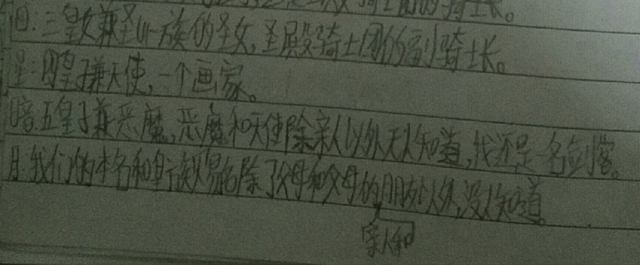 日:三皇女兼圣山一族的圣女,圣殿骑士团的副骑士长。
星:四皇子兼天使,一个画家。
暗:五皇子兼恶魔,恶魔和天使除亲人以外无人知道,我还是一名剑客。
月:我们的本名和种族名除了父母和父母的朋友以外,没人知道。
亲人和